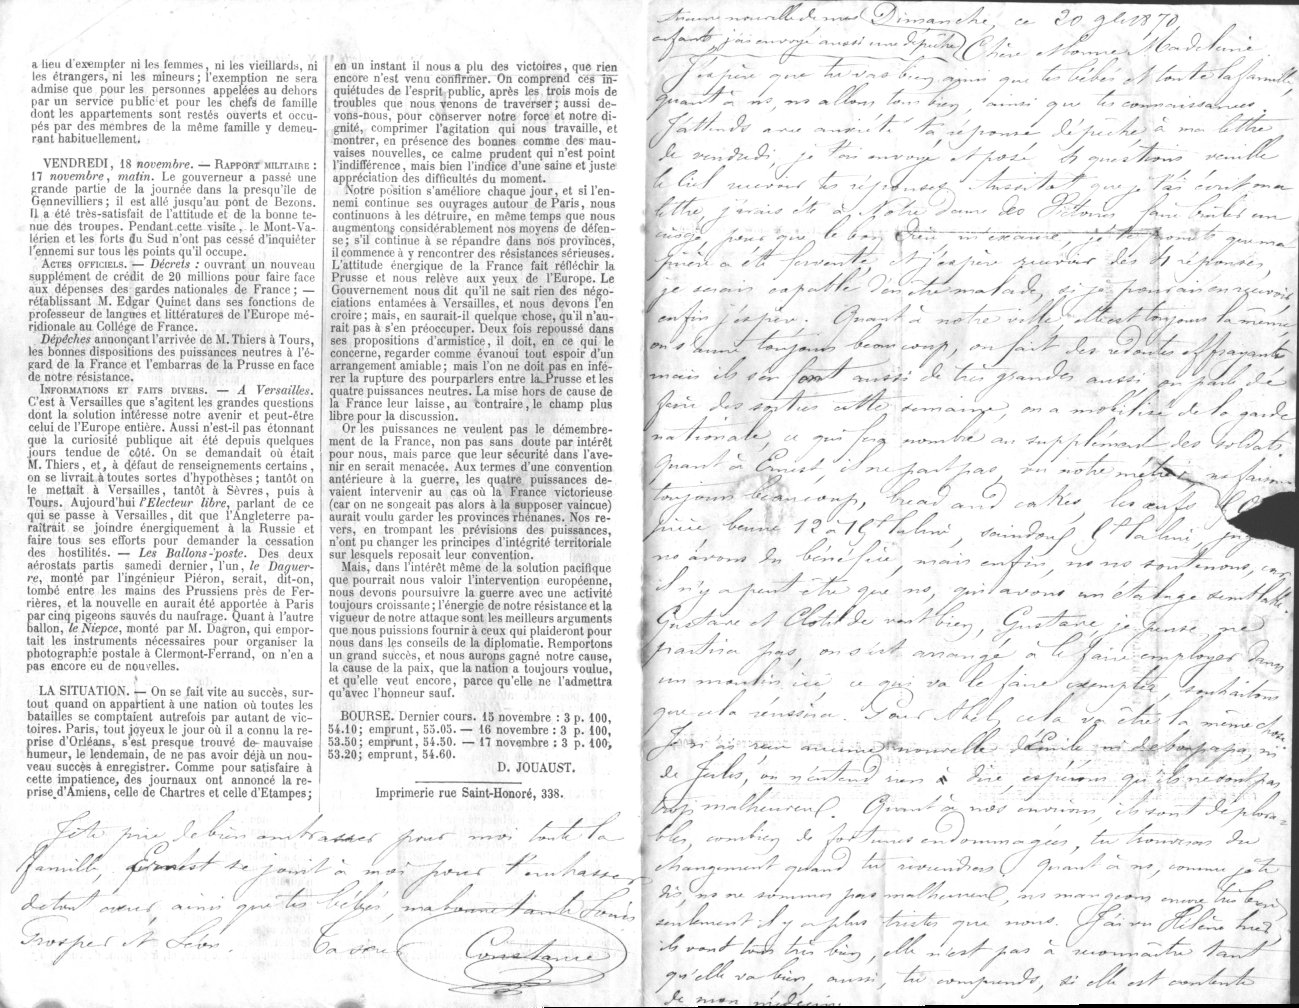 a lieu d'exempter ni les femmes, ni les vieillards, ni
les étrangers, ni les mineurs; l'exemption ne sera
admise que pour les personnes appelées au dehors
par un service public et pour les chefs de famille
dont les appartements sont restés ouverts et occu-
pés par des membres de la même famille y demeu-
rant habituellement.
VENDREDI, 18 novembre. — RAPPORT MILITAIRE :
17 novembre, matin. Le gouverneur a passé une
grande partie de la journée dans la presqu'île de
Gennevilliers; il est allé jusqu'au pont de Bezons.
Il a été très-satisfait de l'attitude et de la bonne te-
nue des troupes. Pendant cette visite, le Mont-Va-
lérien et les forts du Sud n'ont pas cessé d'inquiéter
l'ennemi sur tous les points qu'il occupe.
ACTES OFFICIELS. — Décrets : ouvrant un nouveau
supplément de crédit de 20 millions pour faire face
aux dépenses des gardes nationales de France; —
rétablissant M. Edgar Quinet dans ses fonctions de
professeur de langues et littératures de l'Europe mé-
ridionale au Collége de France.
Dépêches annonçant l'arrivée de M. Thiers à Tours,
les bonnes dispositions des puissances neutres à l'é-
gard de la France et l'embarras de la Prusse en face
de notre résistance.
INFORMATIONS ET FAITS DIVERS. — A Versailles.
C'est à Versailles que s'agitent les grandes questions
dont la solution intéresse notre avenir et peut-être
celui de l'Europe entière. Aussi n'est-il pas étonnant
que la curiosité publique ait été depuis quelques
jours tendue de côté. On se demandait où était
M. Thiers, et, à défaut de renseignements certains,
on se livrait à toutes sortes d'hypothèses; tantôt on
le mettait à Versailles, tantôt à Sèvres, puis à
Tours. Aujourd'hui l'Electeur libre, parlant de ce
qui se passe à Versailles, dit que l'Angleterre pa-
raîtrait se joindre énergiquement à la Russie et
faire tous ses efforts pour demander la cessation
des hostilités. — Les Ballons-poste. Des deux
aérostats partis samedi dernier, l'un, le Daguer-
re, monté par l'ingénieur Piéron, serait, dit-on,
tombé entre les mains des Prussiens près de Fer-
rières, et la nouvelle en aurait été apportée à Paris
par cinq pigeons sauvés du naufrage. Quant à l'autre
ballon, le Niepce, monté par M. Dagron, qui empor-
tait les instruments nécessaires pour organiser la
photographie postale à Clermont-Ferrand, on n'en a
pas encore eu de nouvelles.
LA SITUATION. — On se fait vite au succès, sur-
tout quand on appartient à une nation où toutes les
batailles se comptaient autrefois par autant de vic-
toires. Paris, tout joyeux le jour où il a connu la re-
prise d'Orléans, s'est presque trouvé de mauvaise
humeur, le lendemain, de ne pas avoir déjà un nou-
veau succès à enregistrer. Comme pour satisfaire à
cette impatience, des journaux ont annoncé la re-
prise d'Amiens, celle de Chartres et celle d'Etampes;
en un instant il nous a plu des victoires, que rien
encore n'est venu confirmer. On comprend ces in-
quiétudes de l'esprit public, après les trois mois de
troubles que nous venons de traverser; aussi de-
vons-nous, pour conserver notre force et notre di-
gnité, comprimer l'agitation qui nous travaille, et
montrer, en présence des bonnes comme des mau-
vaises nouvelles, ce calme prudent qui n'est point
l'indifférence, mais bien l'indice d'une saine et juste
appréciation des difficultés du moment.
Notre position s'améliore chaque jour, et si l'en-
nemi continue ses ouvrages autour de Paris, nous
continuons à les détruire, en même temps que nous
augmentons considérablement nos moyens de défen-
se; s'il continue à se répandre dans nos provinces,
il commence à y rencontrer des résistances sérieuses.
L'attitude énergique de la France fait réfléchir la
Prusse et nous relève aux yeux de l'Europe. Le
Gouvernement nous dit qu'il ne sait rien des négo-
ciations entamées à Versailles, et nous devons l'en
croire; mais, en saurait-il quelque chose, qu'il n'au-
rait pas à s'en préoccuper. Deux fois repoussé dans
ses propositions d'armistice, il doit, en ce qui le
concerne, regarder comme évanoui tout espoir d'un
arrangement amiable; mais l'on ne doit pas en infé-
rer la rupture des pourparlers entre la Prusse et les
quatre puissances neutres. La mise hors de cause de
la France leur laisse, au contraire, le champ plus
libre pour la discussion.
Or les puissances ne veulent pas le démembre-
ment de la France, non pas sans doute par intérêt
pour nous, mais parce que leur sécurité dans l'ave-
nir en serait menacée. Aux termes d'une convention
antérieure à la guerre, les quatre puissances de-
vaient intervenir au cas où la France victorieuse
(car on ne songeait pas alors à la supposer vaincue)
aurait voulu garder les provinces rhénanes. Nos re-
vers, en trompant les prévisions des puissances,
n'ont pu changer les principes d'intégrité territoriale
sur lesquels reposait leur convention.
Mais, dans l'intérêt même de la solution pacifique
que pourrait nous valoir l'intervention européenne,
nous devons poursuivre la guerre avec une activité
toujours croissante; l'énergie de notre résistance et la
vigueur de notre attaque sont les meilleurs arguments
que nous puissions fournir à ceux qui plaideront pour
nous dans les conseils de la diplomatie. Remportons
un grand succès, et nous aurons gagné notre cause,
la cause de la paix, que la nation a toujours voulue,
et qu'elle veut encore, parce qu'elle ne l'admettra
qu'avec l'honneur sauf.
BOURSE. Dernier cours. 15 novembre : 3 p. 100,
54.10; emprunt, 55.05. — 16 novembre : 3 p. 100,
53.50; emprunt, 54.50. — 17 novembre : 3 p. 100,
53.20; emprunt, 54.60.
D. JOUAUST.
Imprimerie rue Saint-Honoré, 338.
Je te prie de bien embrasser pour moi toute la
famille, Ernest se joint à moi pour t'embrasser
de tout cœur, ainsi que tes bébés, ma bonne tante Louis
Prosper et Léon. Ta sœur Constance
aucune nouvelle de mes Dimanche, ce 20 9bre 1870
enfants, j'ai envoyé aussi une dépêche Chère et bonne Madeleine
J'espère que tu vas bien, ainsi que tes bébés et toute la famille,
quant à ns, ns allons tous bien, ainsi que tes connaissances.
J'attends avec anxiété ta réponse dépêche à ma lettre
de vendredi, je t'ai envoyé et posé 4 questions veuille
le ciel recevoir tes réponses. Aussitôt que je t'ai écrit ma
lettre, j'avais été à Notre Dame des Victoires faire brûler un
cierge, pour que le bon Dieu m'exauce, je te promets que ma
prière a été fervente, et j'espère recevoir des 4 réponses,
je serais capable d'en être malade, si je pouvais en recevoir,
enfin j'espère. Quant à notre ville elle est toujours la même
on s'arme toujours beaucoup, on fait des redoutes effrayantes
mais ils s'en font aussi de très grandes aussi, on parle de
faire des sorties cette semaine, on a mobilisé de la garde
nationale, ce qui fera nombre au supplément des soldats.
Quant à Ernest, il ne part pas, vu notre métier, ns faisons
toujours beaucoup, bread and cakes, les œufs
beurre 12 à 15 la livre, saindoux 6 la livre,
ns avons du bénéfice, mais enfin, ns ns soutenons, car
il n'y a peut être que ns, qui avons un étalage semblable.
Gustave et Clotilde vont bien, Gustave je pense ne
partira pas, on s'est arrangé à le faire employer dans
un moulin ici ce qui va le faire exempter, souhaitons
que cela réussira. Pour Abel, cela va être la même chose.
Je n'ai reçu aucune nouvelle d'Emile ni de bon papa, ni
de Jules, on n'entend rien à dire espérons qu'ils ne sont pas
trop malheureux. Quant à nos environs, ils sont déplora-
bles, combien de fortunes endommagées, tu trouveras du
changement quand tu reviendras, quant à ns, comme je te
dis, ns ne sommes pas malheureux, ns mangeons encore très bien,
seulement il y a plus tristes que nous. J'ai vu Hélène hier,
ils vont tous très bien, elle n'est pas à reconnaître tant
qu'elle va bien aussi, tu comprends, si elle est contente
de mon médecin